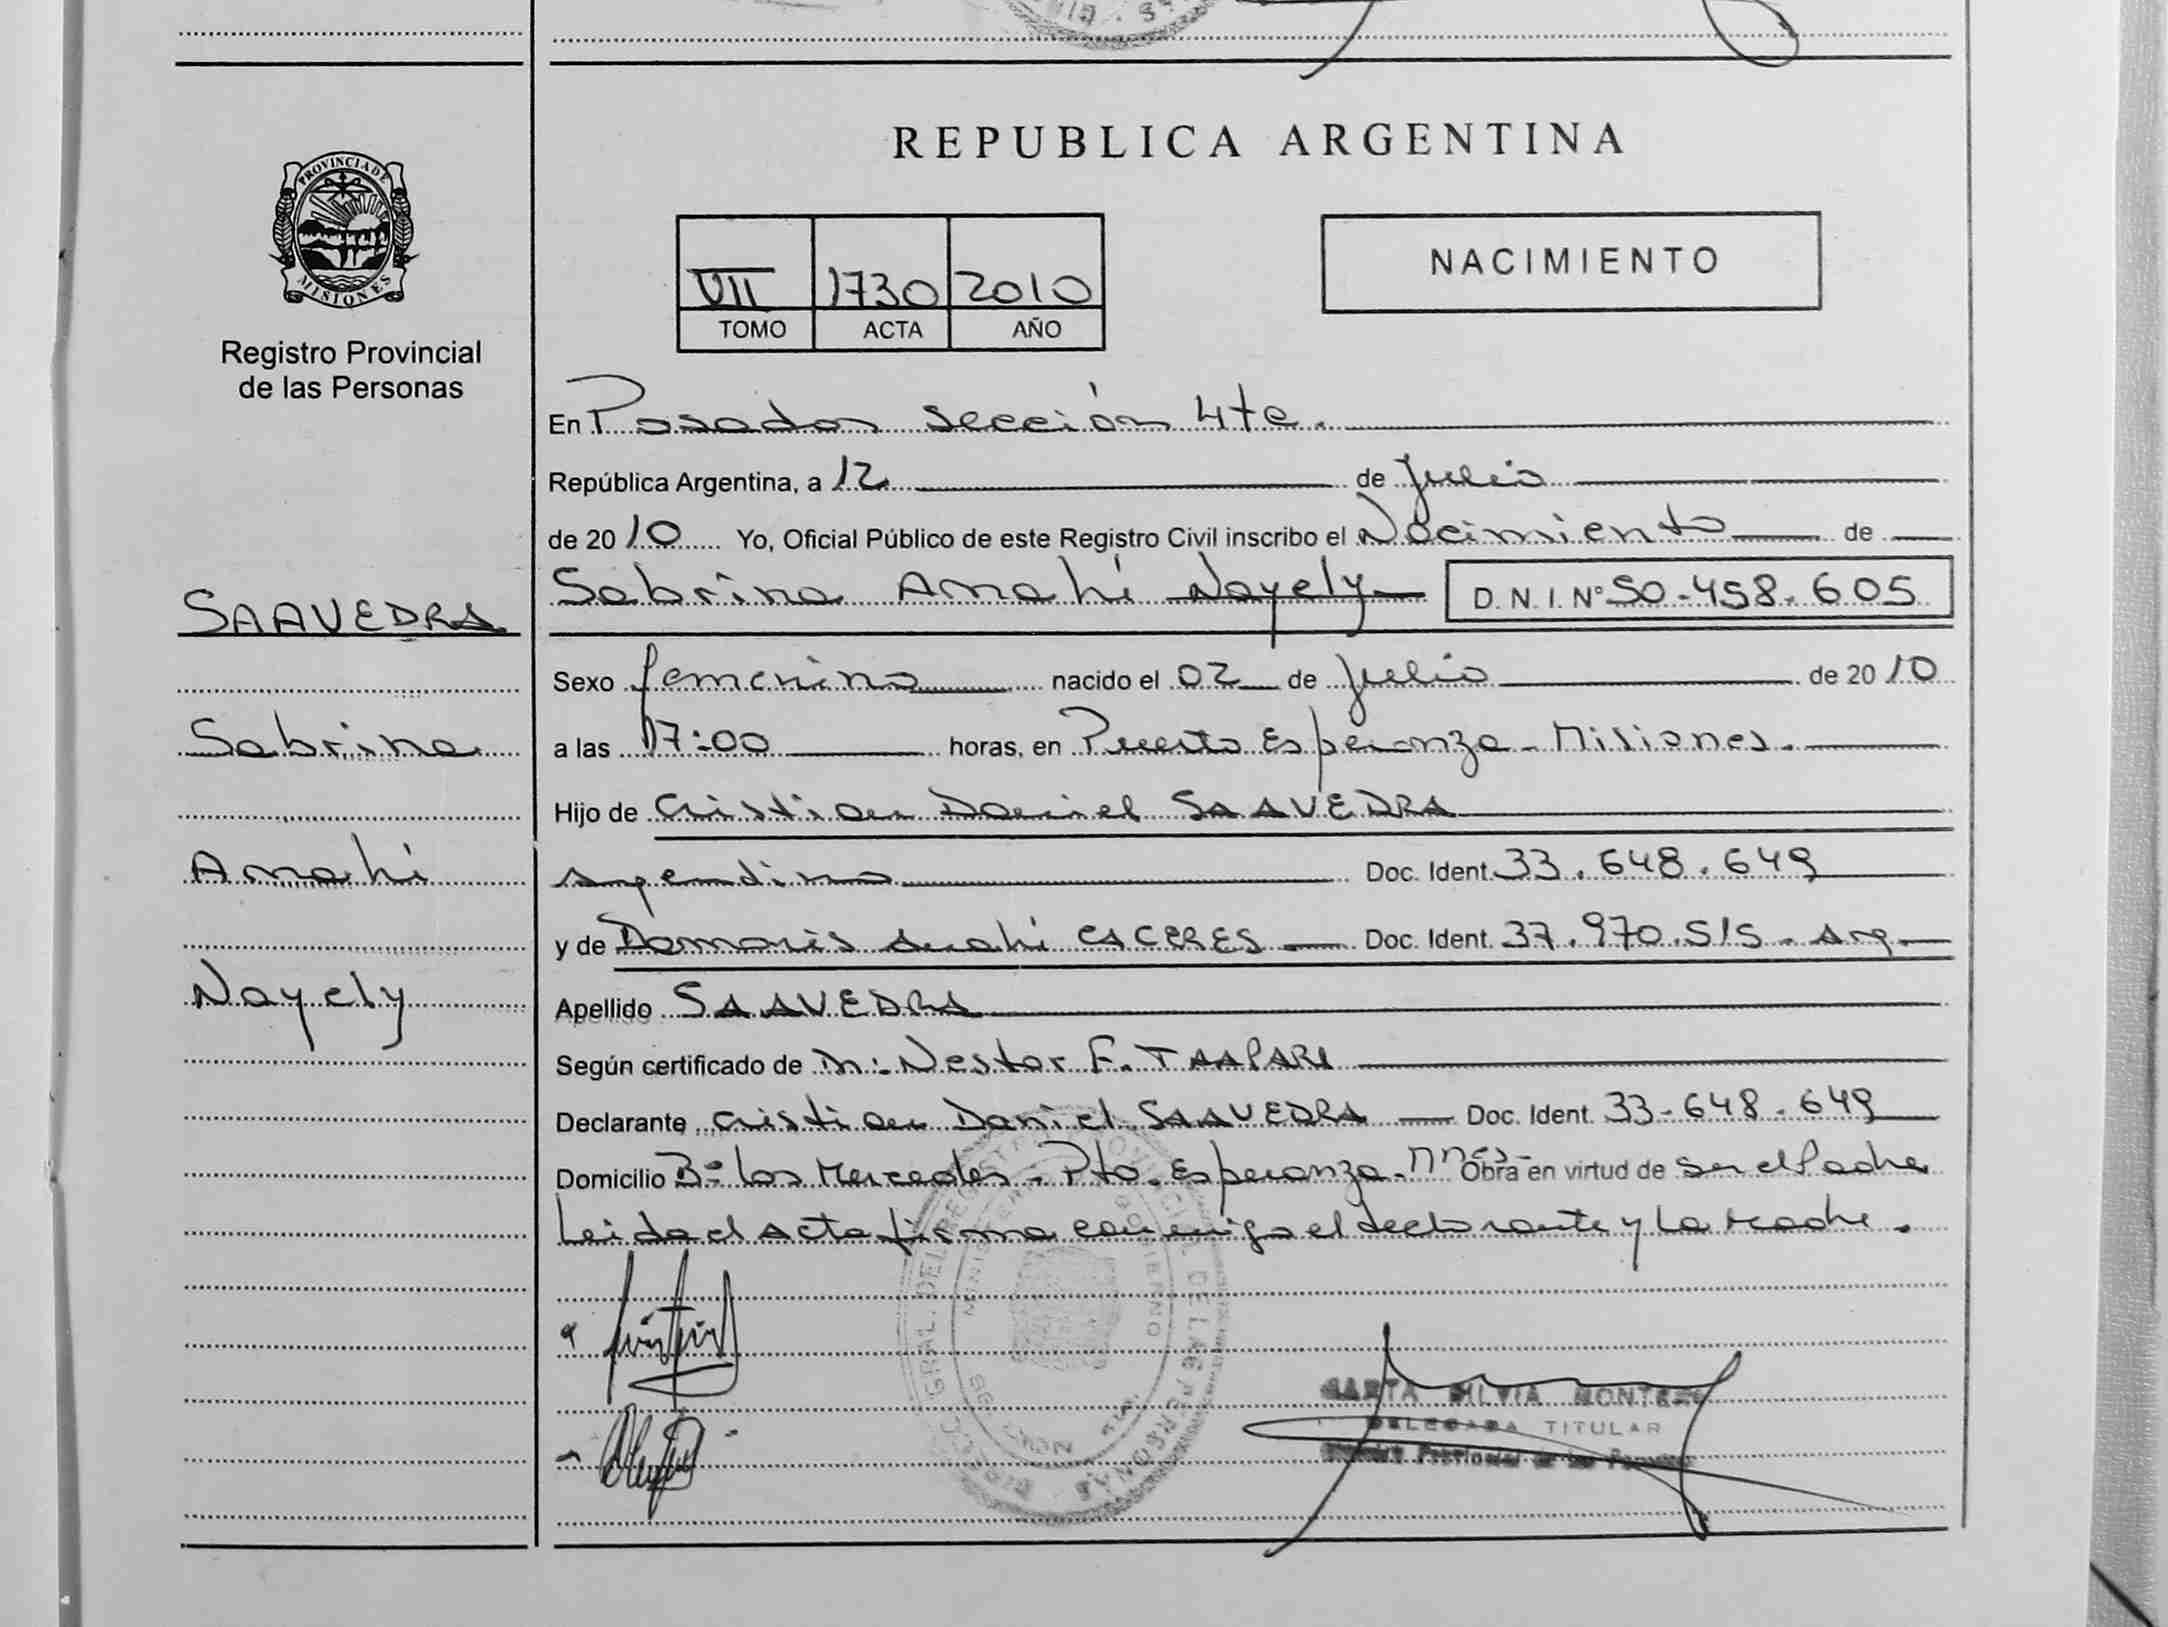 REPUBLICA ARGENTINA
PROVINCIA DE
MISIONES
Registro Provincial
de las Personas
VII 1730 2010
TOMO ACTA AÑO
NACIMIENTO
En Posadas Sección 4ta.
República Argentina, a 12 de Julio
de 2010 Yo, Oficial Público de este Registro Civil inscribo el Nacimiento de
Sabrina Amahí Nayely D.N.I. Nº 50.458.605
SAAVEDRA
Sabrina
Amahí
Nayely
Sexo femenino nacido el 02 de Julio de 2010
a las 17:00 horas, en Puerto Esperanza - Misiones.
Hijo de Cristian Daniel SAAVEDRA
argentino Doc. Ident. 33.648.649
y de Damaris Anahí CACERES Doc. Ident. 37.970.515 - Arg.
Apellido SAAVEDRA
Según certificado de m: Nestor F.
Declarante Cristian Daniel SAAVEDRA Doc. Ident. 33-648.649
Domicilio Bº Las Mercedes - Pto. Esperanza - Mnes - Obra en virtud de Ser el Padre
Leida el Acta firma conmigo el declarante y La madre.
REGISTRO PROVINCIAL DE LAS PERSONAS
MINISTERIO GOBIERNO
MARTA SILVIA
DELEGADA TITULAR
Provincial de las Personas